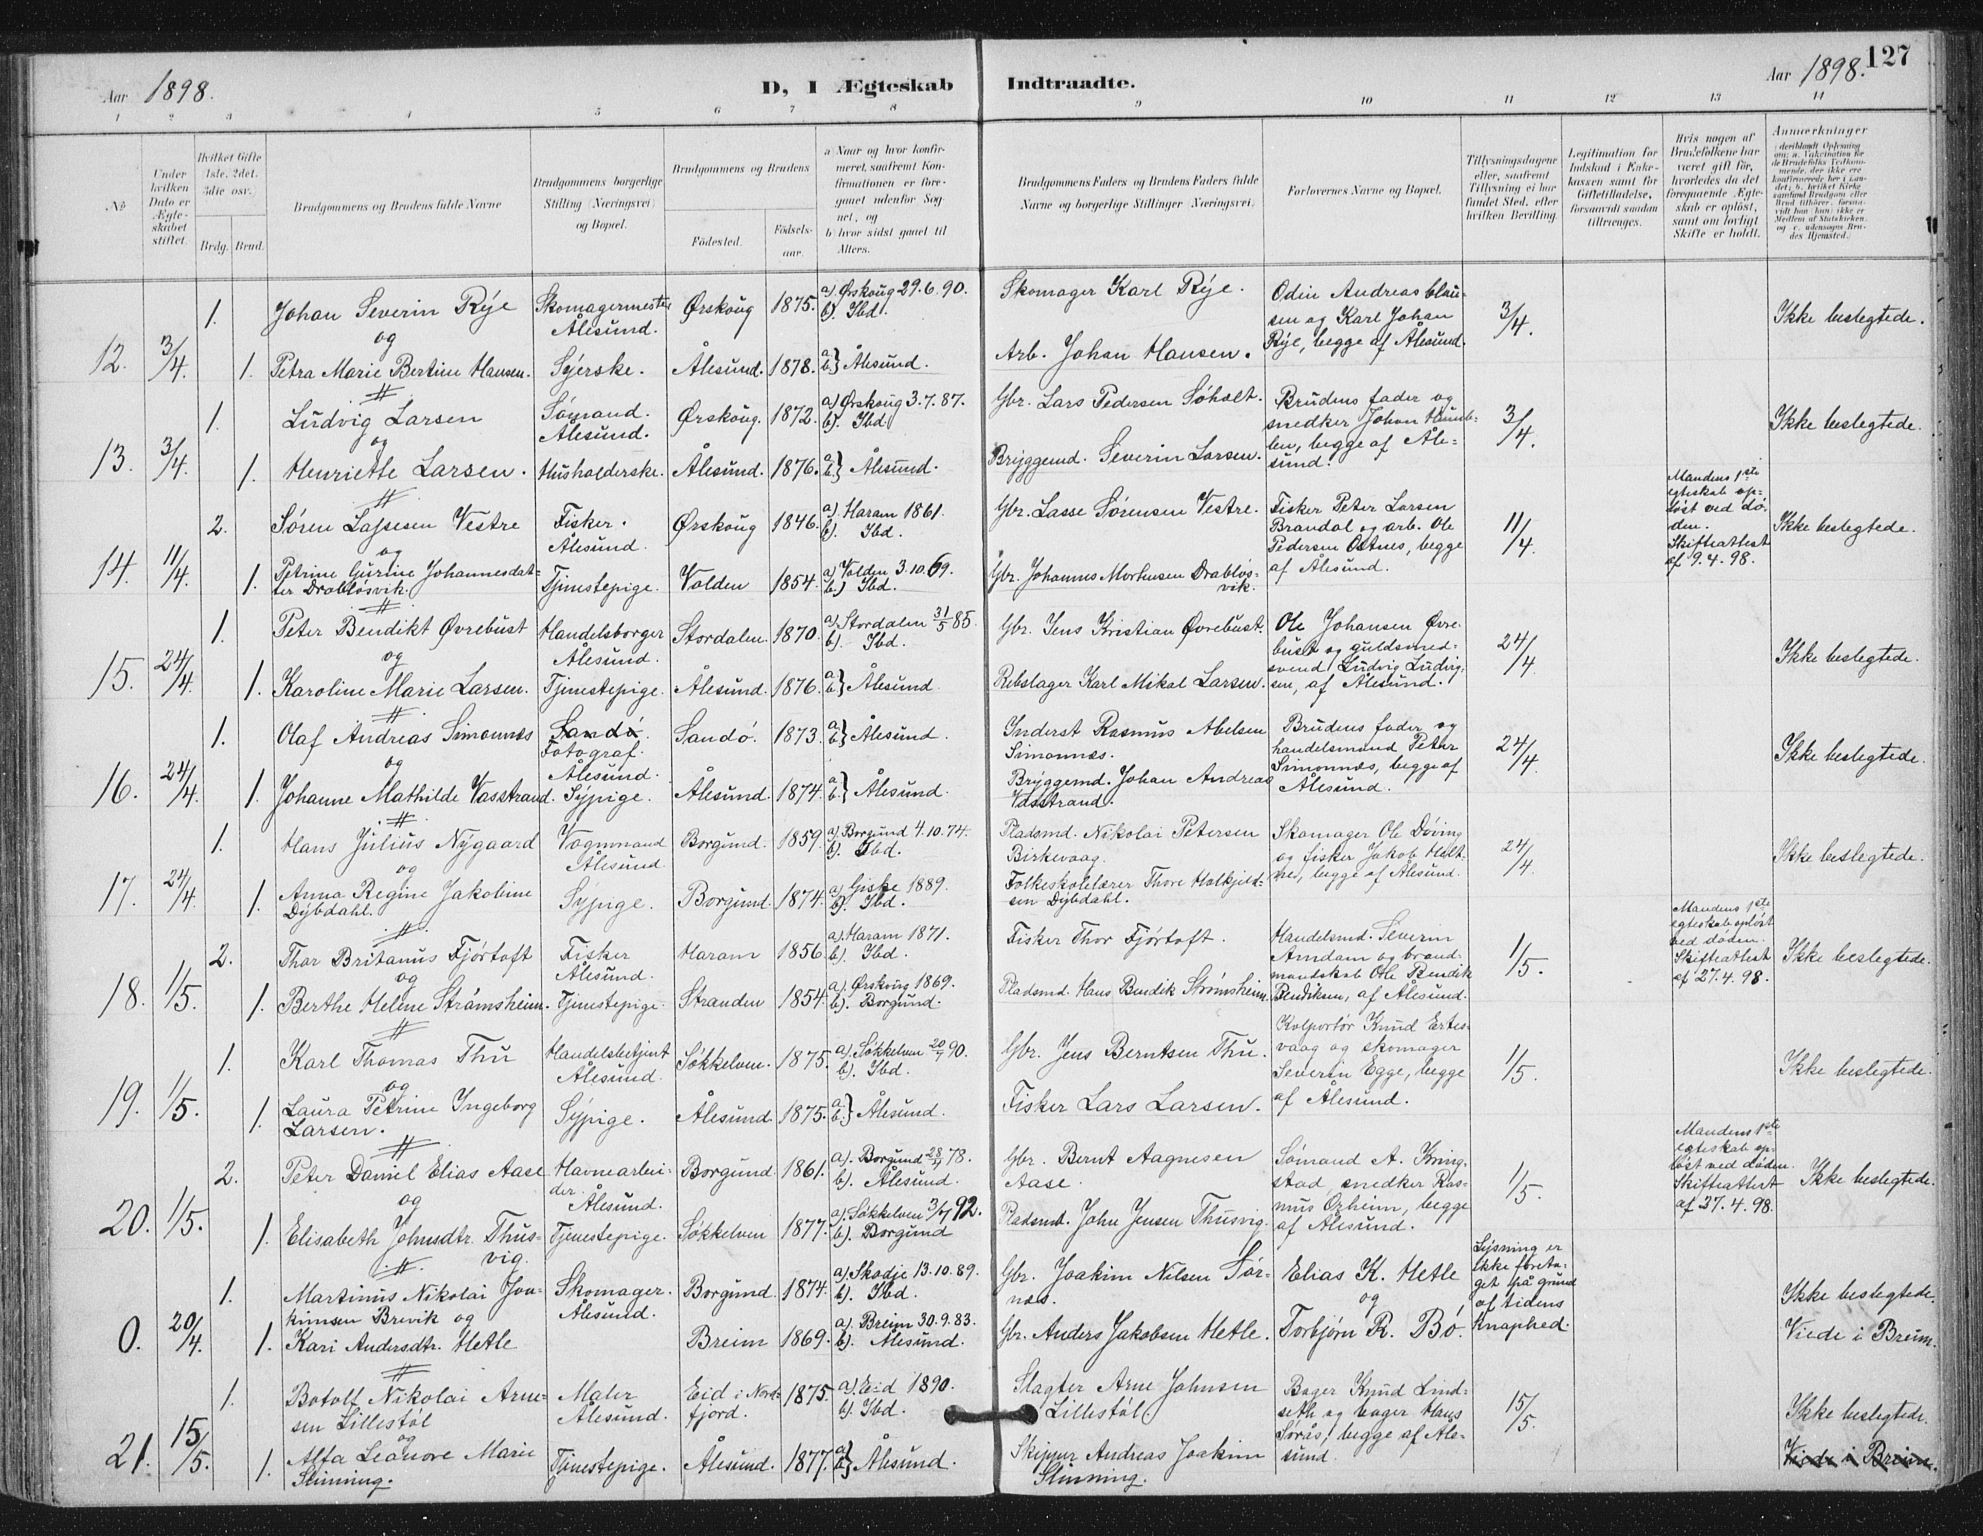 Aar 1898.
D, I Ægteskab Indtraadte.
Aar 1898. 127
1 2 3 4 5 6 7 8 9 10 11 12 13 14
No
Under hvilken Dato er Ægteskabet stiftet.
Hvilket Gifte 1ste, 2det, 3die osv.)
Brdg. Brud.
Brudgommens og Brudens fulde Navne
Brudgommens borgerlige Stilling (Næringsvei) og Bopæl.
Brudgommens og Brudens
Fødested.
Fødselsaar.
a Naar og hvor konfirmeret, saafremt Konfirmationen er foregaaet udenfor Sognet, og
b hvor sidst gaaet til Alters.
Brudgommens Faders og Brudens Faders fulde Navne og borgerlige Stillinger (Næringsvei).
Forlovernes Navne og Bopæl.
Tillysningsdagene eller, saafremt Tillysning ei har fundet Sted, efter hvilken Bevilling.
Legitimation for Indskud i Enkekassen samt for Giftetilladelse, forsaavidt saadan tiltrænges.
Hvis nogen af Brudefolkene har været gift før, hvorledes da det foregaaende Ægteskab er opløst, samt om lovligt Skifte er holdt.
Anmærkninger
12. 3/4. 1. Johan Severin Rýe Skomagermester Ålesund. Ørskoug 1875. a) Ørskoug 29.6.90. b). Ibd. Skomager Karl Rýe. Odin Andreas Clausen og Karl Johan Rýe, begge af Ålesund. 3/4. Ikke beslegtede.
og
1. Petra Marie Bertine Hansen. Sýerske. Ålesund. 1878. a b} Ålesund. Arb. Johan Hansen.
13. 3/4. 1. Ludvig Larsen Sømand. Ålesund. Ørskoug. 1872. a) Ørskoug 3.7.87. b). Ibd. Gbr. Lars Pedersen Søholt. Brudens fader og snedker Johan Humblen, begge af Ålesund. 3/4. Ikke beslegtede.
og
1. Henriette Larsen. Husholderske. Ålesund. 1876. a b} Ålesund. Bryggemd. Severin Larsen.
14. 11/4. 2. Søren Lassesen Vestre Fisker. Ålesund. Ørskoug 1846. a). Haram 1861. b). Ibd. Gbr. Lasse Sørensen Vestre. Fisker Peter Larsen Brandal og arb. Ole Pedersen Ostnes, begge af Ålesund. 11/4. Mandens 1ste egteskab opløst ved døden. Skifteattest af 9.4.98. Ikke beslegtede.
og
1. Petrine Gurine Johannesdatter Drabløsvik. Tjenestepige. Volden 1854. a) Volden 3.10.69. b.) Ibd. Gbr. Johannes Mortensen Drabløsvik.
15. 24/4. 1. Peter Bendikt Øvrebust Handelsborger Ålesund. Stordalen. 1870. a) Stordalen 31/5 85. b). Ibd. Gbr. Jens Kristian Øvrebust. Ole Johansen Øvrebust og guldsmedsvend Ludvig Ludvigsen, af Ålesund. 24/4. Ikke beslegtede.
og
1. Karoline Marie Larsen. Tjenestepige. Ålesund. 1876. a b} Ålesund. Rebslager Karl Mikal Larsen.
16. 24/4. 1. Olaf Andreas Simonnes Sandø. Fotograf. Ålesund. Sandø. 1873. a b} Ålesund. Inderst Rasmus Abelsen Simonnæs. Brudens fader og handelsmand Peter Simonnæs, begge af Ålesund. 24/4. Ikke beslegtede.
og
1. Johanne Mathilde Vasstrand. Sýpige. Ålesund. 1874. a b} Ålesund. Bryggemd. Johan Andreas Vasstrand.
17. 24/4. 1. Hans Julius Nýgaard Vognmand Ålesund. Borgund. 1859. a) Borgund 4.10.74. b). Ibd. Pladsmd. Nikolai Petersen Birkevaag. Skomager Ole Døving og fisker Jakob , begge af Ålesund. 24/4. Ikke beslegtede.
og
1. Anna Regine Jakobine Dýbdahl. Sýpige. Borgund. 1874. a) Giske 1889. b). Ibd. Folkeskolelærer Thore Dýbdahl.
18. 1/5. 2. Thor Britanus Fjørtoft Fisker Ålesund. Haram 1856. a). Haram 1871. b). Ibd. Fisker Thor Fjørtoft. Handelsmd. Severin Amdam og brandmandskab Ole Bendik Bendiksen, af Ålesund. 1/5. Mandens 1ste egteskab opløst ved døden. Skifteattest af 27.4.98. Ikke beslegtede.
og
1. Berthe Helene Strømsheim. Tjenestepige. Stranden 1854. a). Ørskoug 1869. b). Borgund. Pladsmd. Hans Bendik Strømsheim.
19. 1/5. 1. Karl Thomas Thu Handelsbetjent Ålesund. Søkkelven. 1875. a). Søkkelven 20/7 90. b). Ibd. Gbr. Jens Berntsen Thu. Kolportør Knud Ertesvaag og skomager Severin Egge, begge af Ålesund. 1/5. Ikke beslegtede.
og
1. Laura Petrine Ingeborg Larsen. Sýpige. Ålesund. 1875. a b} Ålesund. Fisker Lars Larsen.
20. 1/5. 2. Peter Daniel Elias Aase Havnearbeider. Ålesund. Borgund 1861. a). Borgund 28/4 78. b). Ålesund. Gbr. Bernt Aagnesen Aase. Sømand A. Kringstad, snedker Rasmus Orheim, begge af Ålesund. 1/5. Mandens 1ste egteskab opløst ved døden. Skifteattest af 27.4.98. Ikke beslegtede.
og
1. Elisabeth Johnsdtr. Thusvig. Tjenestepige. Søkkelven 1877. a). Søkkelven 3/7 92. b). Borgund Pladsmd. John Jensen Thusvig.
0. 20/4. 1. Martinus Nikolai Joakimsen Brevik og Skomager. Ålesund. Borgund. 1874. a). Skodje 13.10.89. b). Ibd. Gbr. Joakim Nilsen Sørnæs. Elias K. Hetle og Torbjørn R. Bø. Lysning er ikke foretaget på grund af tidens knaphed. Ikke beslegtede. Viede i Breim.
1. Kari Andersdtr. Hetle Breim 1869. a). Breim 30.9.83. b). Ålesund. Gbr. Anders Jakobsen Hetle.
21. 15/5. 1. Botolf Nikolai Arnesen Lillestøl Maler Ålesund. Eid i Nordfjord. 1875. a). Eid 1890. b). Ibd. Slagter Arne Johnsen Lillestøl. Bager Knud Lindseth og bager Hans Sørås, begge af Ålesund. 15/5. Ikke beslegtede. Viede i Breim.
og
1. Alfa Leonore Marie Slinning. Tjenestepige. Ålesund. 1877. a b} Ålesund. Skipper Andreas Joakim Slinning.